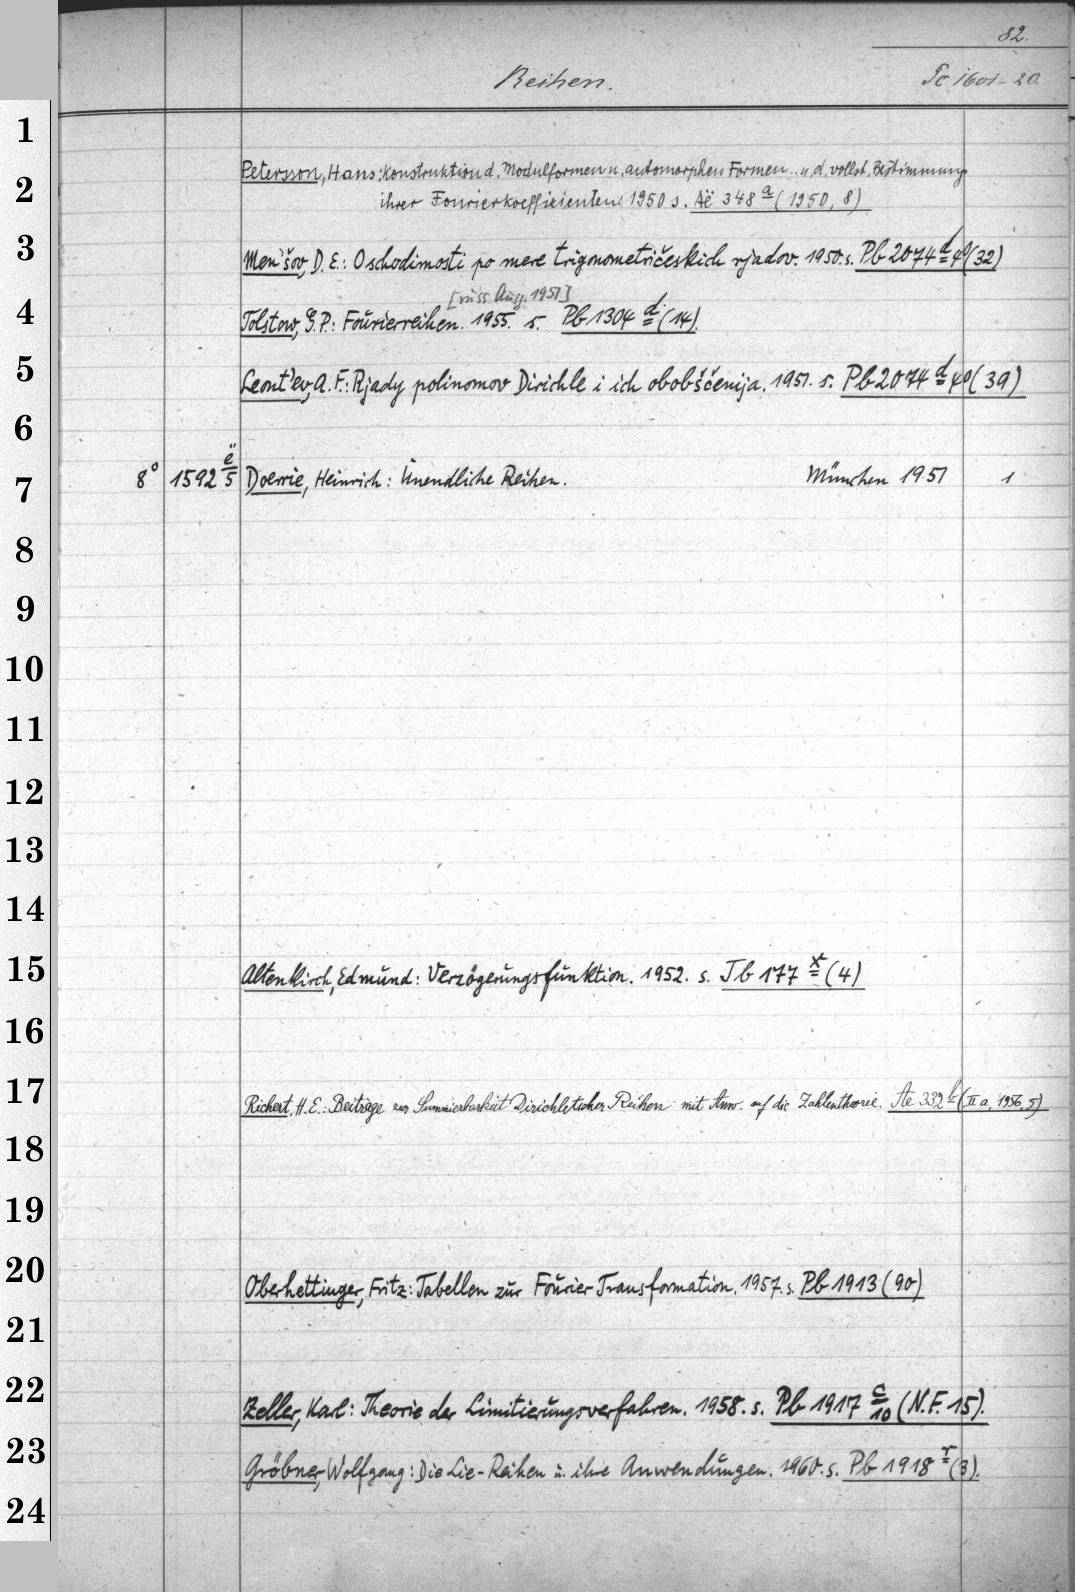 82.
Reihen. Tc 1601-20.
1
Petersson, Hans: Konstruktion d. Modulformen u. automorphen Formen.. u. d. vollst. Bestimmung
2
ihrer Fourierkoeffizienten 1950 s. Aë 348 a (1950, 8)
3 Men'šov, D. E.: O schodimosti po mere trigonometričeskich rjadov. 1950. s. Pb 2074 d 4° (32)
[russ. Ausg. 1951]
4 Tolstow, G. P.: Fourierreihen. 1955. s. Pb 1304 d (14).
5 Leont'ev, A. F.: Rjady polinomov Dirichle i ich obobščenija. 1951. s. Pb 2074 d 4° (39)
6
7 8° 1592 ë/5 Doerrie, Heinrich: Unendliche Reihen. München 1951 1
8
9
10
11
12
13
14
15 Altenkirch, Edmund: Verzögerungsfunktion. 1952. s. Jb 177 x (4)
16
17 Richert, H. E.: Beiträge zur Summierbarkeit Dirichletscher Reihen mit Anw. auf die Zahlentheorie. Ae 332 (II a, 1956, 5)
18
19
20 Oberhettinger, Fritz: Tabellen zur Fourier Transformation. 1957. s. Pb 1913 (90)
21
22 Zeller, Karl: Theorie der Limitierungsverfahren. 1958. s. Pb 1917 c/10 (N. F. 15).
23 Gröbner, Wolfgang: Die Lie-Reihen u. ihre Anwendungen. 1960. s. Pb 1918 r (3).
24